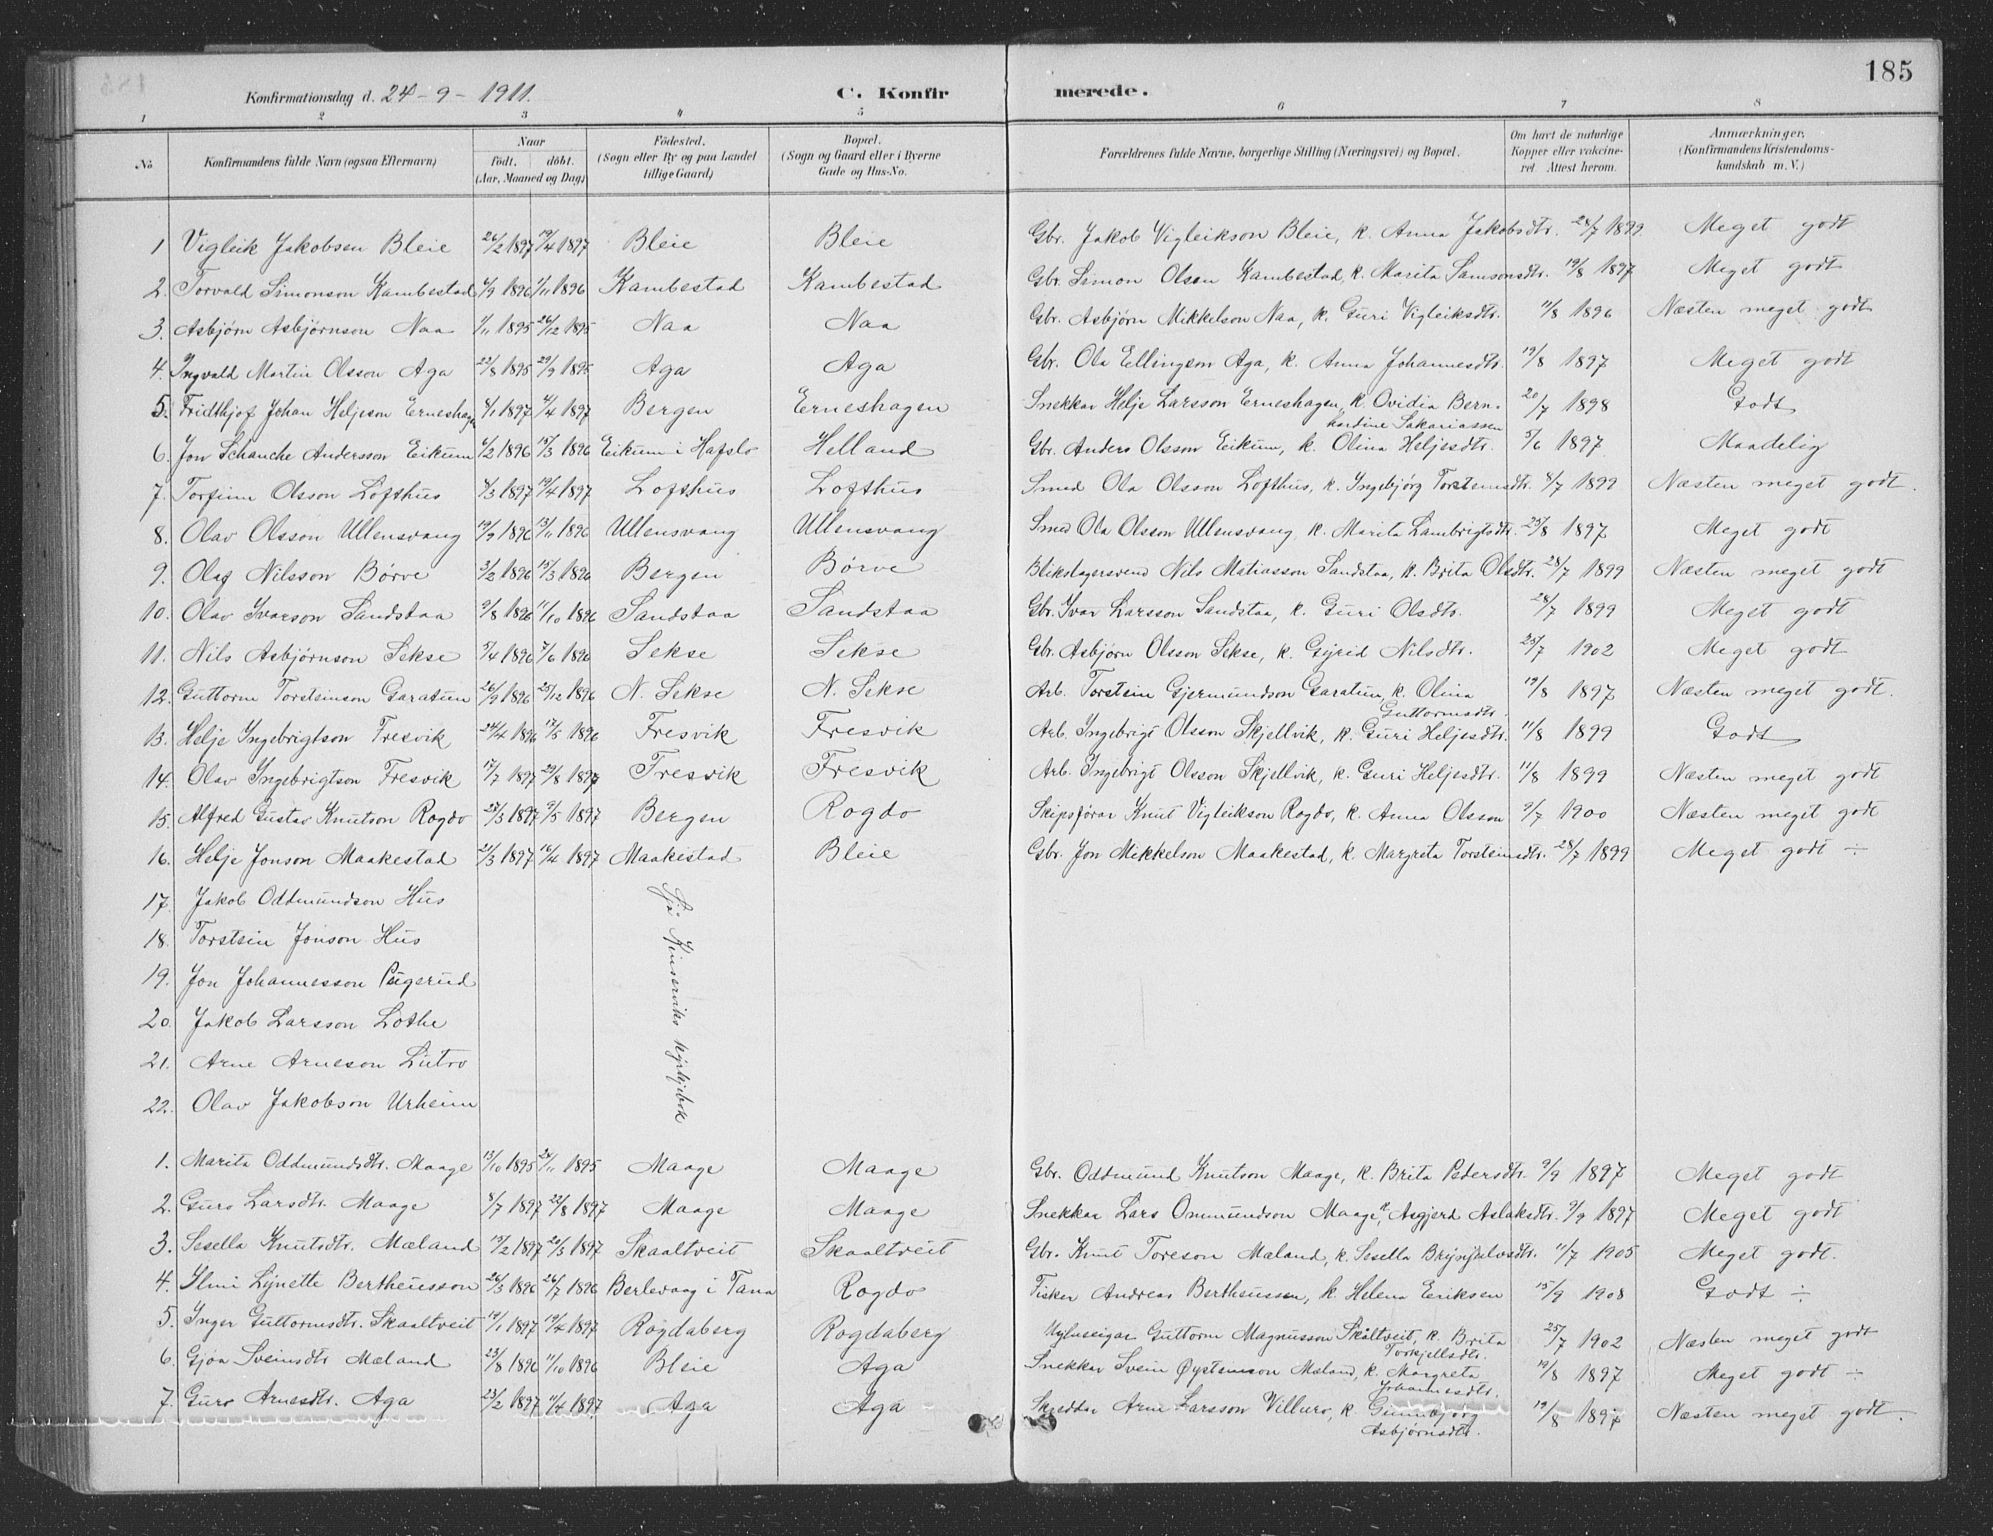 185
Konfirmationsdag d. 24-9-1911.
C. Konfirmerede.
1 2 3 4 5 6 7 8
No.
Konfirmandens fulde Navn (ogsaa Efternavn)
Naar
født. døbt.
(Aar, Maaned og Dag)
Fødested.
(Sogn eller By og paa Landet
tillige Gaard)
Bopæl.
(Sogn og Gaard eller i Byerne
Gade og Hus-No.
Forældrenes fulde Navne, borgerlige Stilling (Næringsvei) og Bopæl.
Om havt de naturlige
Kopper eller vakcine-
ret. Attest herom.
Anmærkninger,
(Konfirmandens Kristendoms-
kundskab m. V.)
1 Vigleik Jakobsen Bleie 26/2 1897 19/4 1897 Bleie Bleie Gbr. Jakob Vigleikson Bleie, k. Anna Jakobsdtr. 28/7 1899 Meget godt
2. Torvald Simonson Kambestad 4/9 1896 1/11 1896 Kambestad Kambestad Gbr. Simon Olsen Kambestad, k. Marita Samsonsdtr. 19/8 1897 Meget godt
3. Asbjørn Asbjørnson Naa 1/11 1895 26/12 1895 Naa Naa Gbr. Asbjørn Mikkelson Naa, k. Guri Vigleiksdtr. 11/8 1896 Næsten meget godt
4. Ingvald Martin Olsson Aga 22/8 1895 29/9 1895 Aga Aga Gbr. Ola Ellingson Aga, k. Anna Johannesdtr. 19/8 1897 Meget godt
5. Fridthjof Johan Heljeson Erneshagen 8/1 1897 4/4 1897 Bergen Erneshagen Snekkar Helje Larsson Erneshagen, k. Ovidia Bern-
hardine Sakariassen 20/7 1898 Godt
6. Jon Schanche Andersson Eikum 4/2 1896 15/3 1896 Eikum i Hafslo Helland Gbr. Anders Olsson Eikum, k. Olina Heljesdtr. 5/6 1897 Maadelig
7. Torfinn Olsson Lofthus 4/3 1897 19/4 1897 Lofthus Lofthus Smed Ola Olsson Lofthus, k. Ingebjørg Torsteinsdtr. 8/7 1899 Næsten meget godt.
8. Olav Olsson Ullensvang 19/9 1896 15/11 1896 Ullensvang Ullensvang Smed Ola Olsson Ullensvang, k. Marita Lambrigtsdtr. 25/8 1897 Meget godt
9. Olaf Nilsson Børve 3/2 1896 15/3 1896 Bergen Børve Blikslagersvend Nils Matiasson Sandstaa, k. Brita Olsdtr. 28/7 1899 Næsten meget godt
10. Olav Ivarson Sandstaa 9/8 1896 11/10 1896 Sandstaa Sandstaa Gbr. Ivar Larsson Sandstaa, k. Guri Olsdtr. 28/7 1899 Meget godt
11. Nils Asbjørnson Sekse 5/4 1896 7/6 1896 Sekse Sekse Gbr. Asbjørn Olsson Sekse, k. Gyrid Nilsdtr. 25/7 1902 Meget godt
12. Guttorm Torsteinson Garatun 26/9 1896 25/12 1896 N. Sekse N. Sekse Arb. Torstein Gjermundson Garatun, k. Olina
Guttormsdtr. 19/8 1897 Næsten meget godt.
13. Helje Ingebrigtson Fresvik 24/4 1896 17/5 1896 Fresvik Fresvik Arb. Ingebrigt Olsson Skjellvik, k. Guri Heljesdtr. 11/8 1899 Godt
14. Olav Ingebrigtson Fresvik 17/7 1897 29/8 1897 Fresvik Fresvik Arb. Ingebrigt Olsson Skjellvik, k. Guri Heljesdtr. 11/8 1899 Næsten meget godt
15. Alfred Gustav Knutson Rogdo 28/3 1897 9/5 1897 Bergen Rogdo Skipsførar Knut Vigleikson Rogdo, k. Anna Olsson 9/7 1900 Næsten meget godt
16. Helje Jonson Maakestad 21/3 1897 16/4 1897 Maakestad Bleie Gbr. Jon Mikkelson Maakestad, k. Margreta Torsteinsdtr. 28/7 1899 Meget godt ÷
17. Jakob Oddmundson Hus
18. Torstein Jonson Hus
19. Jon Johannesson Digerud
20. Jakob Larsson Lothe
21. Arne Arneson Lutro
22. Olav Jakobson Urheim
Sjå Kinserviks kyrkjebok
1. Marita Oddmundsdtr. Maage 13/10 1895 24/11 1895 Maage Maage Gbr. Oddmund Knutson Maage, k. Brita Pedersdtr. 9/9 1897 Meget godt
2. Guro Larsdtr. Maage 8/7 1897 22/8 1897 Maage Maage Snekkar Lars Ommundson Maage, k. Asgjerd Aslaksdtr. 9/9 1897 Meget godt
3. Sesella Knutsdtr. Mæland 19/2 1897 28/3 1897 Skaaltveit Skaaltveit Gbr. Knut Toreson Mæland, k. Sesella Brynjulvsdtr. 11/7 1905 Meget godt.
4. Ilmi Lynette Bertheusson 26/3 1896 26/7 1896 Berlevaag i Tana Rogdo Fisker Andreas Bertheussen, k. Helena Eriksen 15/9 1908 Godt ÷
5. Inger Guttormsdtr. Skaaltveit 19/1 1897 19/4 1897 Rogdaberg Rogdaberg Mylnseigar Guttorm Magnusson Skåltveit, k. Brita
Torkjellsdtr. 25/7 1902 Næsten meget godt
6. Gjøa Sveinsdtr. Mæland 23/8 1896 11/10 1896 Bleie Aga Snekkar Svein Øysteinson Mæland, k. Margreta
Johannesdtr. 19/8 1897 Meget godt ÷
7. Guro Arnesdtr. Aga 23/2 1897 11/4 1897 Aga Aga Skreddar Arne Larsson Villuro, k. Gunnbjørg
Asbjørnsdtr. 19/8 1897 Næsten meget godt.